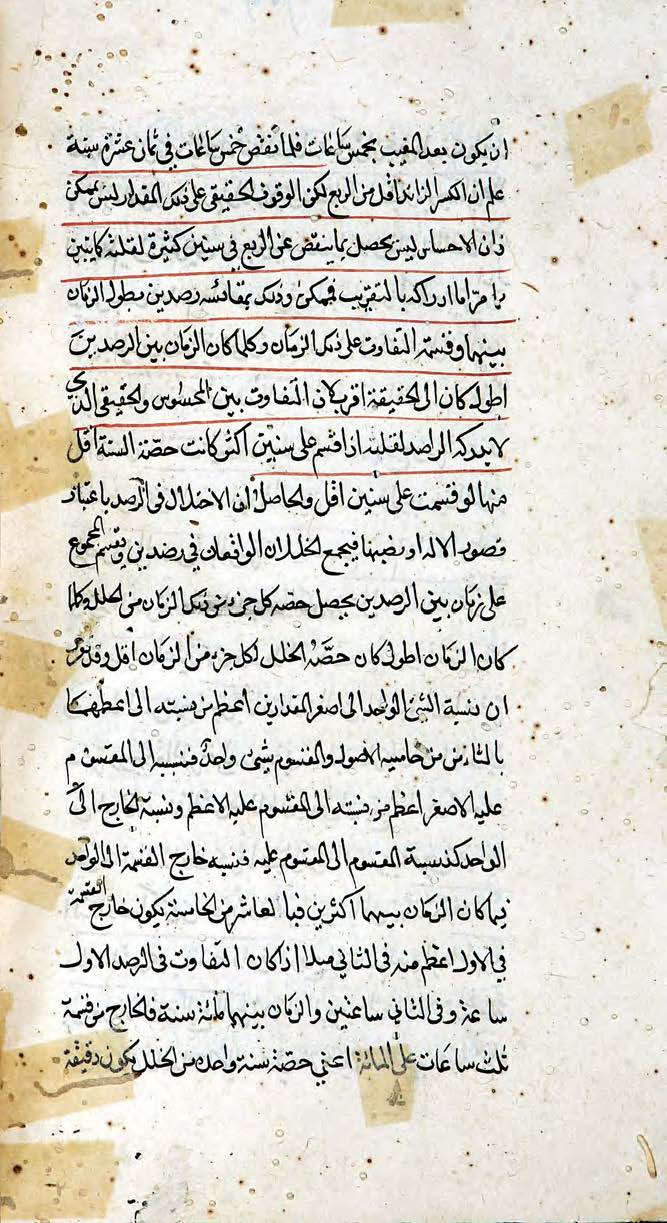 ان يكون بعد المغيب بخمس ساعات فلما نقص خمس ساعات في ثمان عشرة سنة
علم ان الكسر الزائد اقل من الربع لكن الوقوف الحقيقي على ذلك المقدار ليس يمكن
ذان الاحساس ليس يحصل بما ينقص عن الربع في سنين كثيرة لقلته كما يتبين
مرا مرّ اما ادراكه بالتقريب فيمكن وذلك بمقائسة رصدين يطول الزمان
بينهما وقسمة التفاوت على ذلك الزمان وكلما كان الزمان بين الرصدين
اطول كان الى الحقيقة اقرب لان التفاوت بين المحسوس والحقيقي الذي
لا يدركه الراصد لقلته اذا قسم على سنين اكثر كانت حصة السنة اقل
منها لو قسمت على سنين اقل والحاصل ان الاختلال في الرصد باعتبار
قصور الاله او نصبها فيجمع الخللان الواقعان في رصدين ويقسم المجموع
على زمان بين الرصدين يحصل حصه كل جزء من ذلك الزمان من الخلل وكلما
كان الزمان اطول كان حصّة الخلل لكل جزء من الزمان اقل وقد
ان نسبة الشئ الواحد الى اصغر المقدارين اعظم من نسبته الى اعظمهما
بالثامن من خامسه الاصول والمقسوم شئ واحد فنسبه الى المقسوم
عليه الاصغر اعظم من نسبته الى المقسوم عليه الاعظم ونسبة الخارج الى
الواحد كنسبة المقسوم الى المقسوم عليه فنسبه خارج القسمة الى الواحد
فيما كان الزمان بينهما اكثر فبالعاشر من الخامسة يكون خارج القسمة
في الاول اعظم منه في الثاني مثلا اذا كان التفاوت في الرصد الاول
ساعة وفي الثاني ساعتين والزمان بينهما مائة سنة فالخارج من قسمة
ثلث ساعات على المائة اعني حصّة سنة واحده من الخلل يكون دقيقة